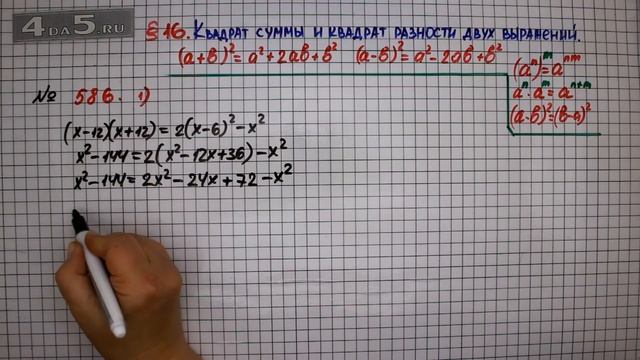 4DA5.RU
§ 16. Квадрат суммы и квадрат разности двух выражений.
(a+b)² = a² + 2ab + b² (a-b)² = a² - 2ab + b²
(aⁿ)ᵐ = aⁿᵐ
aⁿ · aᵐ = aⁿ⁺ᵐ
(a-b)² = (b-a)²
№ 586. 1)
(x-12)(x+12) = 2(x-6)² - x²
x² - 144 = 2(x² - 12x + 36) - x²
x² - 144 = 2x² - 24x + 72 - x²